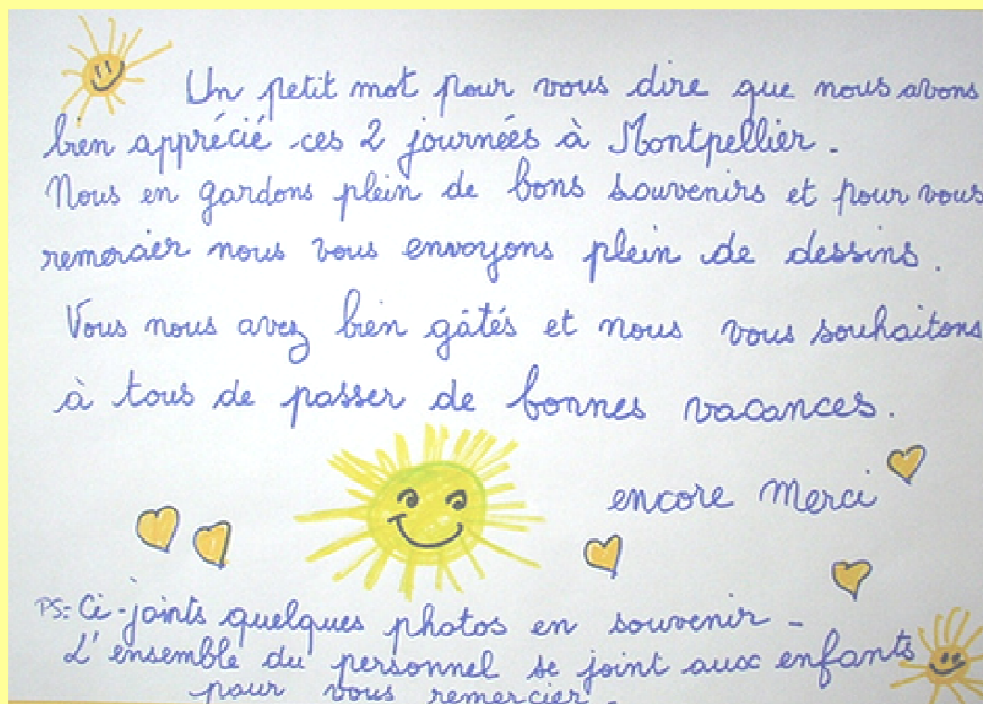 Un petit mot pour vous dire que nous avons
bien apprécié ces 2 journées à Montpellier.
Nous en gardons plein de bons souvenirs et pour vous
remercier nous vous envoyons plein de dessins.
Vous nous avez bien gâtés et nous vous souhaitons
à tous de passer de bonnes vacances.
encore Merci
PS: Ci-joints quelques photos en souvenir -
L'ensemble du personnel se joint aux enfants
pour vous remercier.